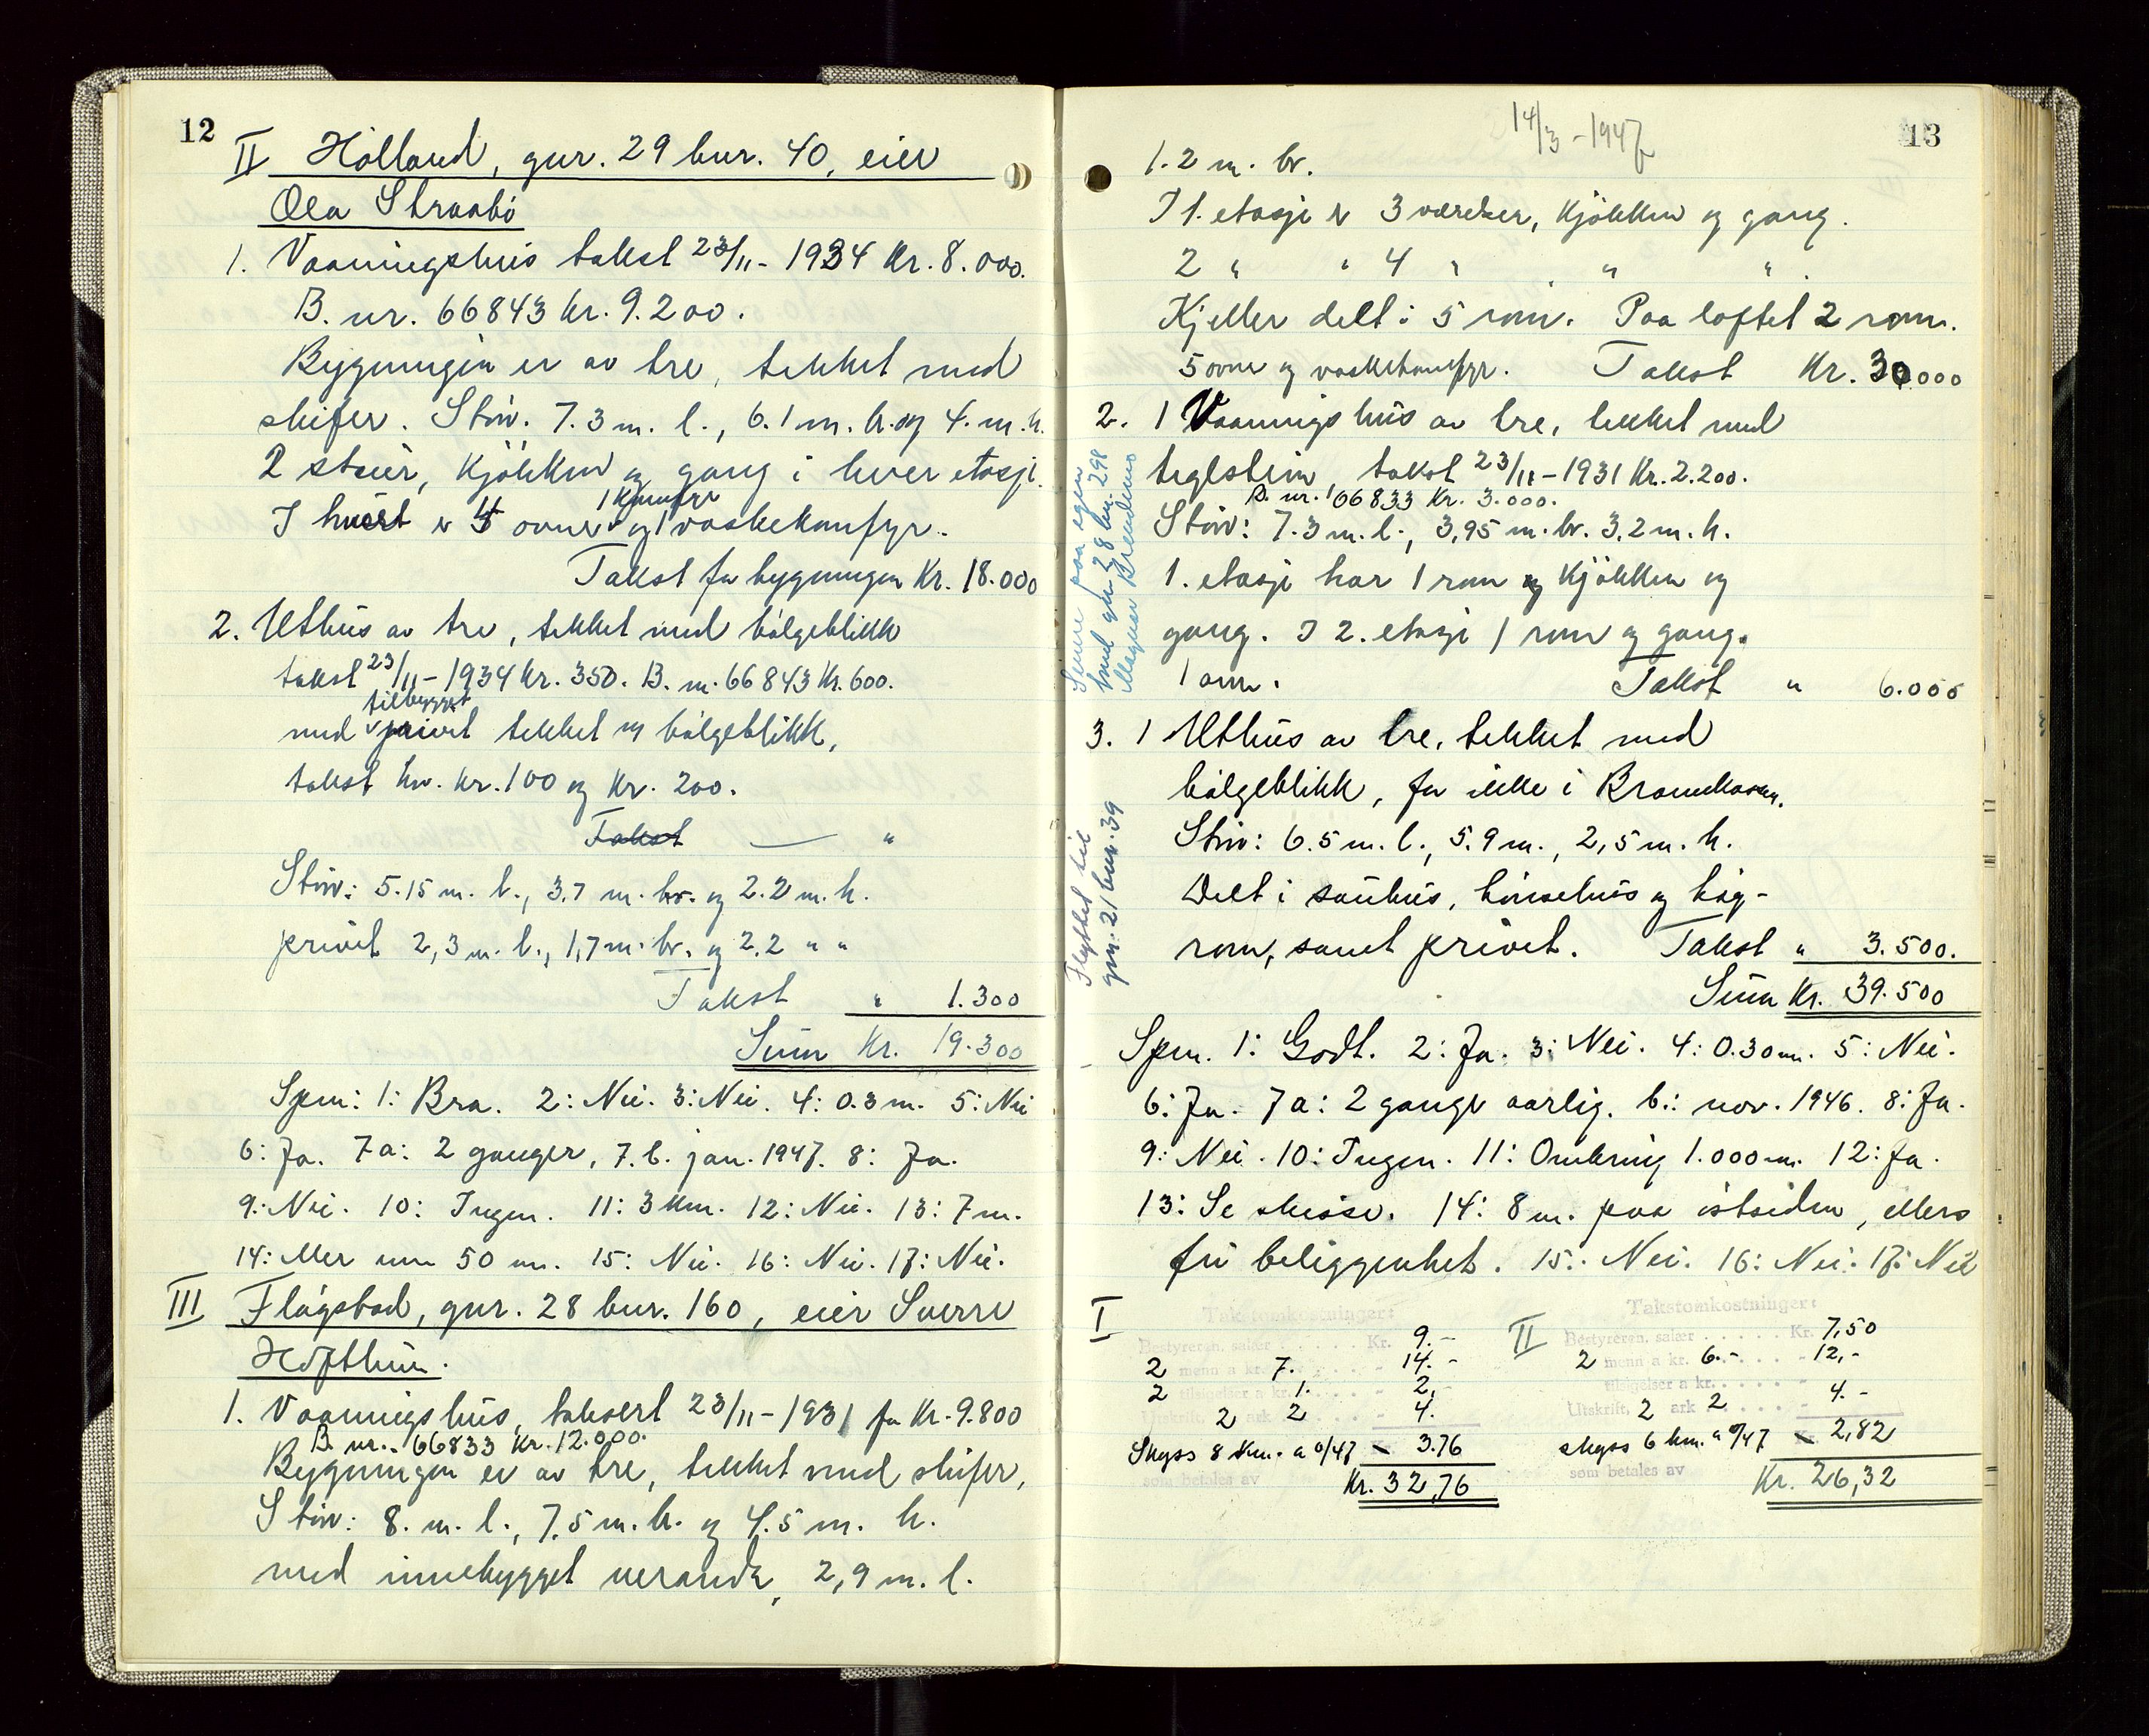 12
II Hölland, gnr. 29 bnr. 40, eier
Ola Straabö
1. Vaaningshus takst 23/11 - 1934 Kr. 8.000.
B. nr. 66843 Kr. 9.200.
Bygningen er av tre, tekket med
skifer. Störr. 7.3 m. l., 6.1 m. br. og 4. m. h.
2 stuer, kjökken og gang i hver etasje.
1 Kamfyr
I huset er 4 ovner og 1 vaskekamfyr.
Takst for bygningen Kr. 18.000
2. Uthus av tre, tekket med bölgeblikk
takst 23/11 - 1934 Kr. 350. B. nr. 66843 Kr. 600.
tilbygget
med privet tekket m bölgeblikk,
takst hv. Kr. 100 og Kr. 200.
Takst — "
Störr: 5.15 m. l., 3.7 m. br. og 2.2 m. h.
privet 2,3 m. l., 1,7 m. br. og 2.2 " "
Takst " 1.300
Sum Kr. 19.300
Spm: 1: Bra. 2: Nei. 3: Nei. 4: 0.3 m. 5: Nei
6: Ja. 7a: 2 ganger, 7.b. jan. 1947. 8: Ja.
9: Nei. 10: Ingen. 11: 3 km. 12: Nei. 13: 7 m.
14: Mer enn 50 m. 15: Nei. 16: Nei. 17: Nei.
III Flågstad, gnr. 28 bnr. 160, eier Sverre
Hofthun.
1. Vaaningshus, taksert 23/11 - 1931 for Kr. 9.800
B. nr. 66833 Kr. 12.000.
Bygningen er av tre, tekket med skifer,
Störr: 8. m. l., 7.5 m. br. og 4.5 m. h.
med innebygget veranda, 2,9 m. l.
14/3 - 1947
13
1.2 m. br.
I 1. etasje er 3 værelser, kjökken og gang.
2 " " 4 " " " .
Kjeller delt i 5 rom. Paa loftet 2 rom.
5 ovner og vaskekamfyr. Takst Kr. 30.000
2. 1 Vaaningshus av tre, tekket med
teglstein, takst 23/11 - 1931 Kr. 2.200.
B. nr. 66833 Kr. 3.000.
Störr: 7.3 m. l., 3,95 m. br. 3.2 m. h.
1. etasje har 1 rom og kjökken og
gang. I 2. etasje 1 rom og gang.
1 ovn. Takst " 6.000
Senere paa egen
tomt gnr 28 bnr. 298
Magnar
3. 1 Uthus av tre, tekket med
bölgeblikk, för ikke i Brannkassen.
Störr: 6.5 m. l., 5.9 m., 2,5 m. h.
Delt i sauhus, hönsehus og
rom, samt privet. Takst " 3.500.
Flyttet til
gnr. 21 bnr. 39
Sum Kr. 39.500
Spm. 1: Godt. 2: Ja. 3: Nei. 4: 0.30 m. 5: Nei.
6: Ja. 7a: 2 ganger aarlig. b.: nov. 1946. 8: Ja.
9: Nei. 10: Ingen. 11: Omkring 1.000 m. 12: Ja.
13: Se skisse. 14: 8 m. paa östsiden, ellers
fri beliggenhet. 15: Nei. 16: Nei. 17: Nei
I
Takstomkostninger:
Bestyreren, salær Kr. 9.-
2 menn a kr. 7. - 14.-
2 tilsigelser a kr. 1. - 2,-
Utskrift, 2 ark 2 - 4.
Skyss 8 km. a 0/47 - 3.76
som betales av
Kr. 32,76
II
Takstomkostninger:
Bestyreren, salær Kr. 7,50
2 menn a kr. 6.- - 12,-
tilsigelser a kr.
Utskrift, 2 ark 2 4.-
skyss 6 km. a 0/47 - 2,82
som betales av
Kr. 26,32